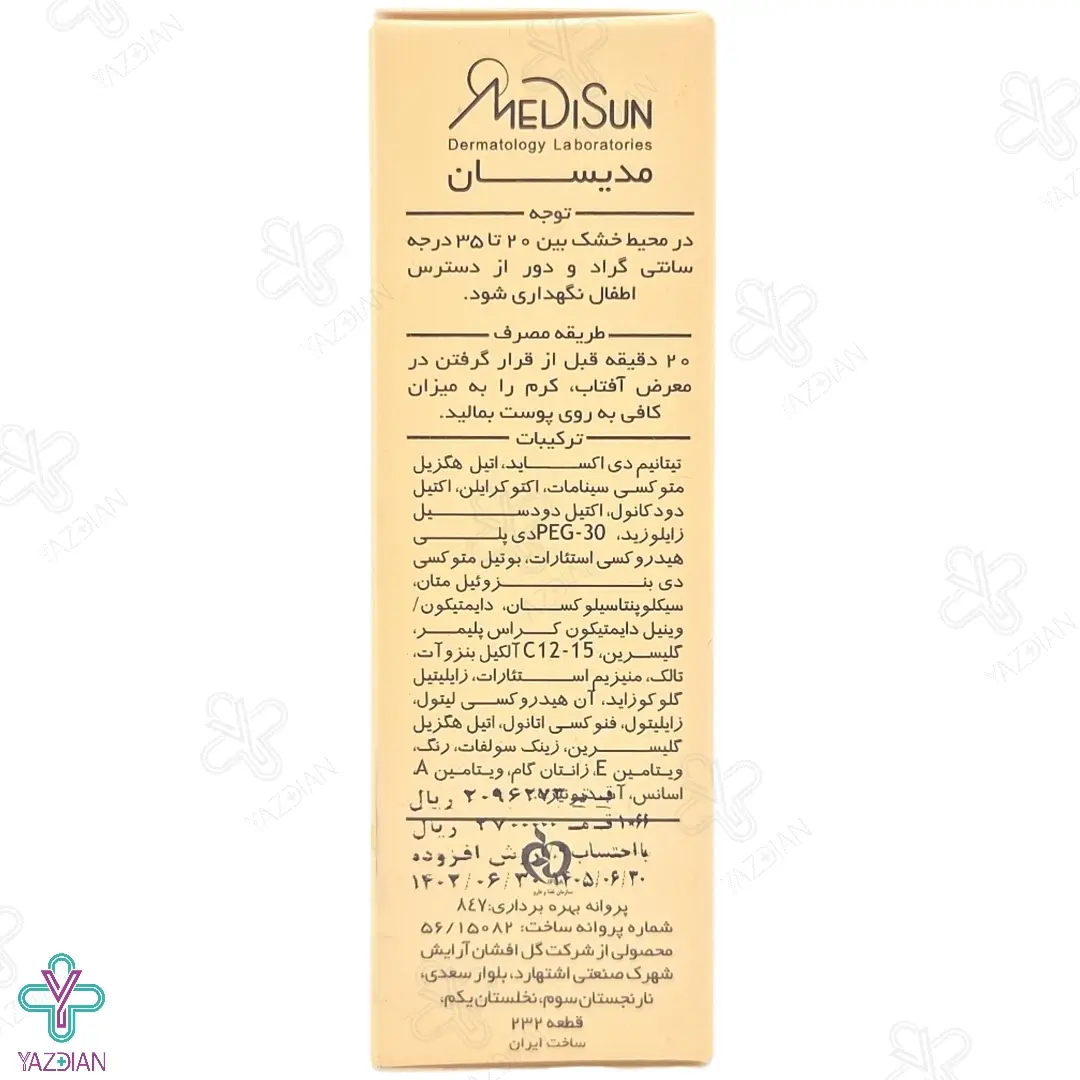 MEDISUN
Dermatology Laboratories
مدیسان
توجه
در محیط خشک بین ۲۰ تا ۳۵ درجه
سانتی گراد و دور از دسترس
اطفال نگهداری شود.
طریقه مصرف
۲۰ دقیقه قبل از قرار گرفتن در
معرض آفتاب، کرم را به میزان
کافی به روی پوست بمالید.
ترکیبات
تیتانیم دی اکساید، اتیل هگزیل
متوکسی سینامات، اکتوکرایلن، اکتیل
دودکانول، اکتیل دودسیل
زایلوزید، PEG-30دی پلی
هیدروکسی استئارات، بوتیل متوکسی
دی بنزوئیل متان،
سیکلوپنتاسیلوکسان، دایمتیکون/
وینیل دایمتیکون کراس پلیمر،
گلیسرین، C12-15آلکیل بنزوآت،
تالک، منیزیم استئارات، زایلیتیل
گلوکوزاید، آن هیدروکسی لیتول،
زایلیتول، فنوکسی اتانول، اتیل هگزیل
گلیسرین، زینک سولفات، رنگ،
ویتامین E، زانتان گام، ویتامین A،
اسانس، ۲۰۹۶۲۷۳ ریال
ریال
با احتساب ارزش افزوده
۱۴۰۵/۰۶/۳۰
سازمان غذا و دارو
پروانه بهره برداری: ۸٤۷
شماره پروانه ساخت: ۵۶/۱۵۰۸۲
محصولی از شرکت گل افشان آرایش
شهرک صنعتی اشتهارد، بلوار سعدی،
نارنجستان سوم، نخلستان یکم،
قطعه ۲۳۲
ساخت ایران
YAZDIAN